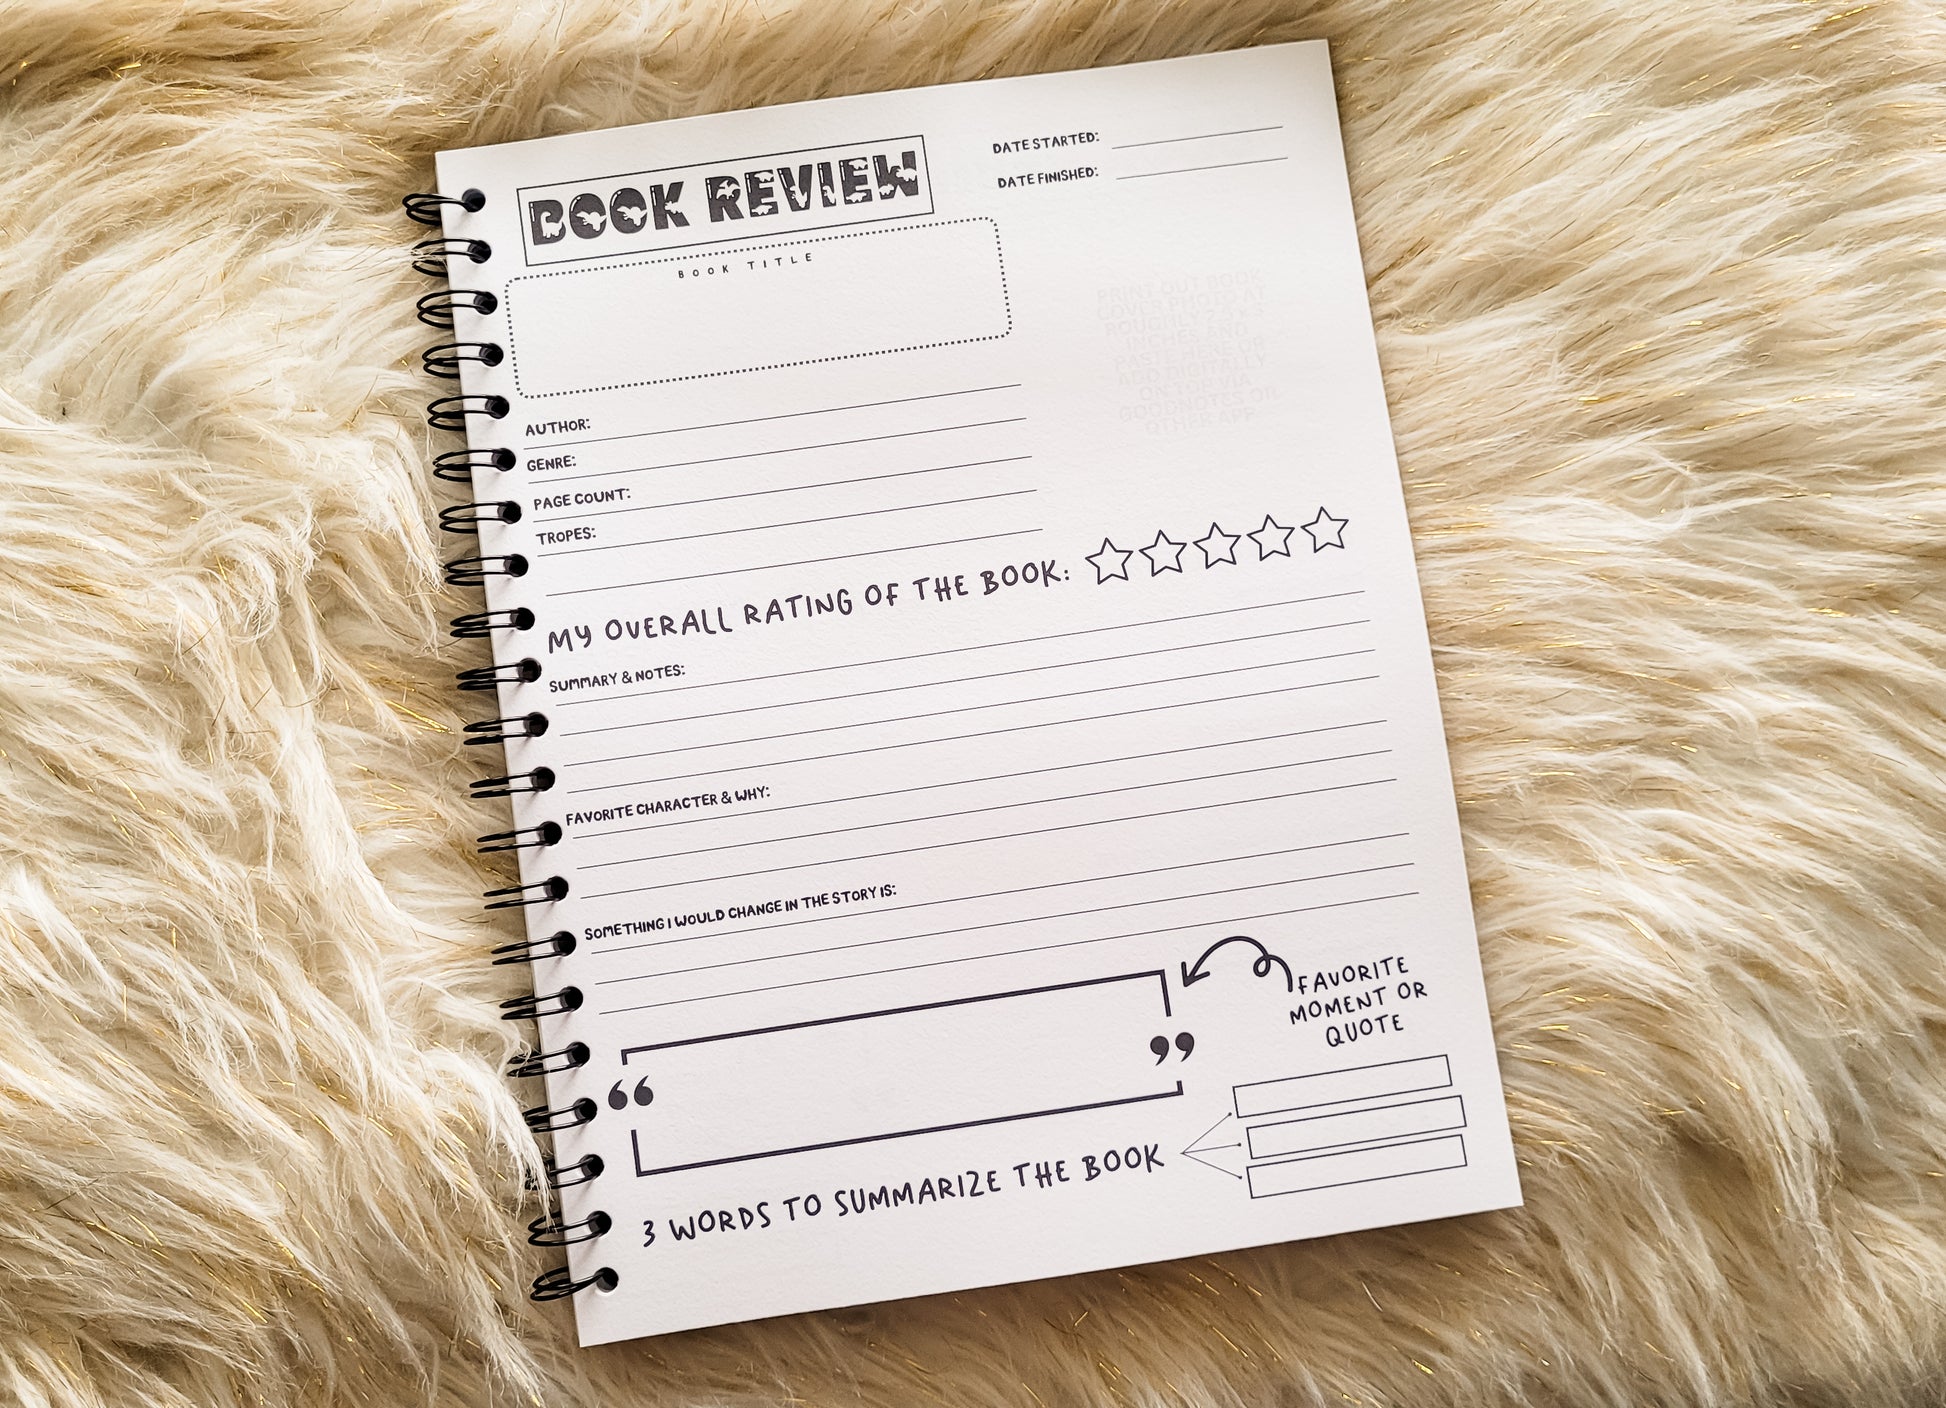 BOOK REVIEW
DATE STARTED:
DATE FINISHED:
BOOK TITLE
PRINT OUT BOOK
COVER PHOTO AT
ROUGHLY
INCHES AND
OR
ADD DIGITALLY
VIA
OTHER APP
AUTHOR:
GENRE:
PAGE COUNT:
TROPES:
MY OVERALL RATING OF THE BOOK:
SUMMARY & NOTES:
FAVORITE CHARACTER & WHY:
SOMETHING I WOULD CHANGE IN THE STORY IS:
FAVORITE
MOMENT OR
QUOTE
“
”
3 WORDS TO SUMMARIZE THE BOOK